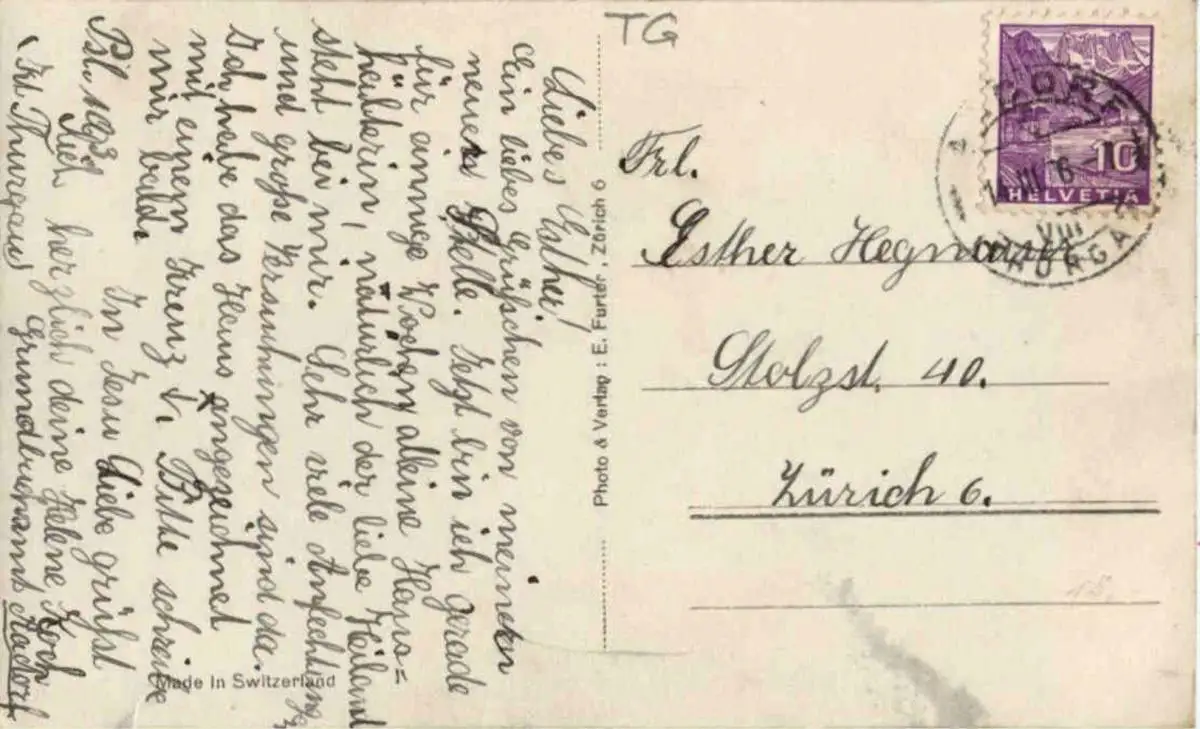 TG
Liebes Esther!
Ein liebes Grüsschen von meiner
neuen Stelle. Jetzt bin ich gerade
für einige Wochen alleine Haus=
hälterin, natürlich der liebe Heiland
steht bei mir. Sehr viele Anfechtung
und große Versuchungen sind da.
Ich habe das Haus angezeichnet
mit einem Kreuz Bitte schreibe
mir bald. In Jesu Liebe grüsst
Dich herzlich deine Helene Koch
Grundbuchamt Aadorf
Kt. Thurgau
Made in Switzerland
Photo & Verlag : E. Furter, Zürich 6
Frl.
Esther Hegnauer
Stolzst. 40.
Zürich 6.
10
HELVETIA
VIII